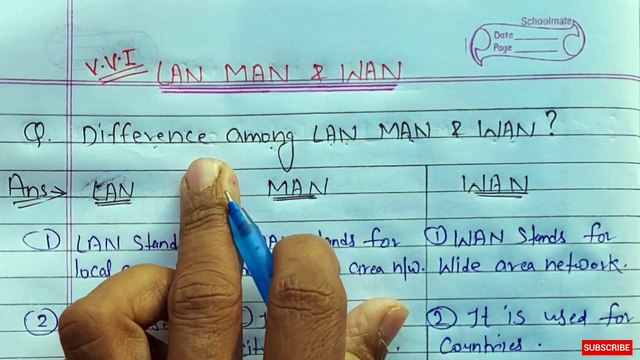 Schoolmate
Date
Page
V.V.I LAN MAN & WAN
Q. Difference among LAN MAN & WAN?
Ans→ LAN MAN WAN
① LAN stands for ① WAN stands for
local area n/w. Wide area network.
② ② It is used for
Countries.
SUBSCRIBE